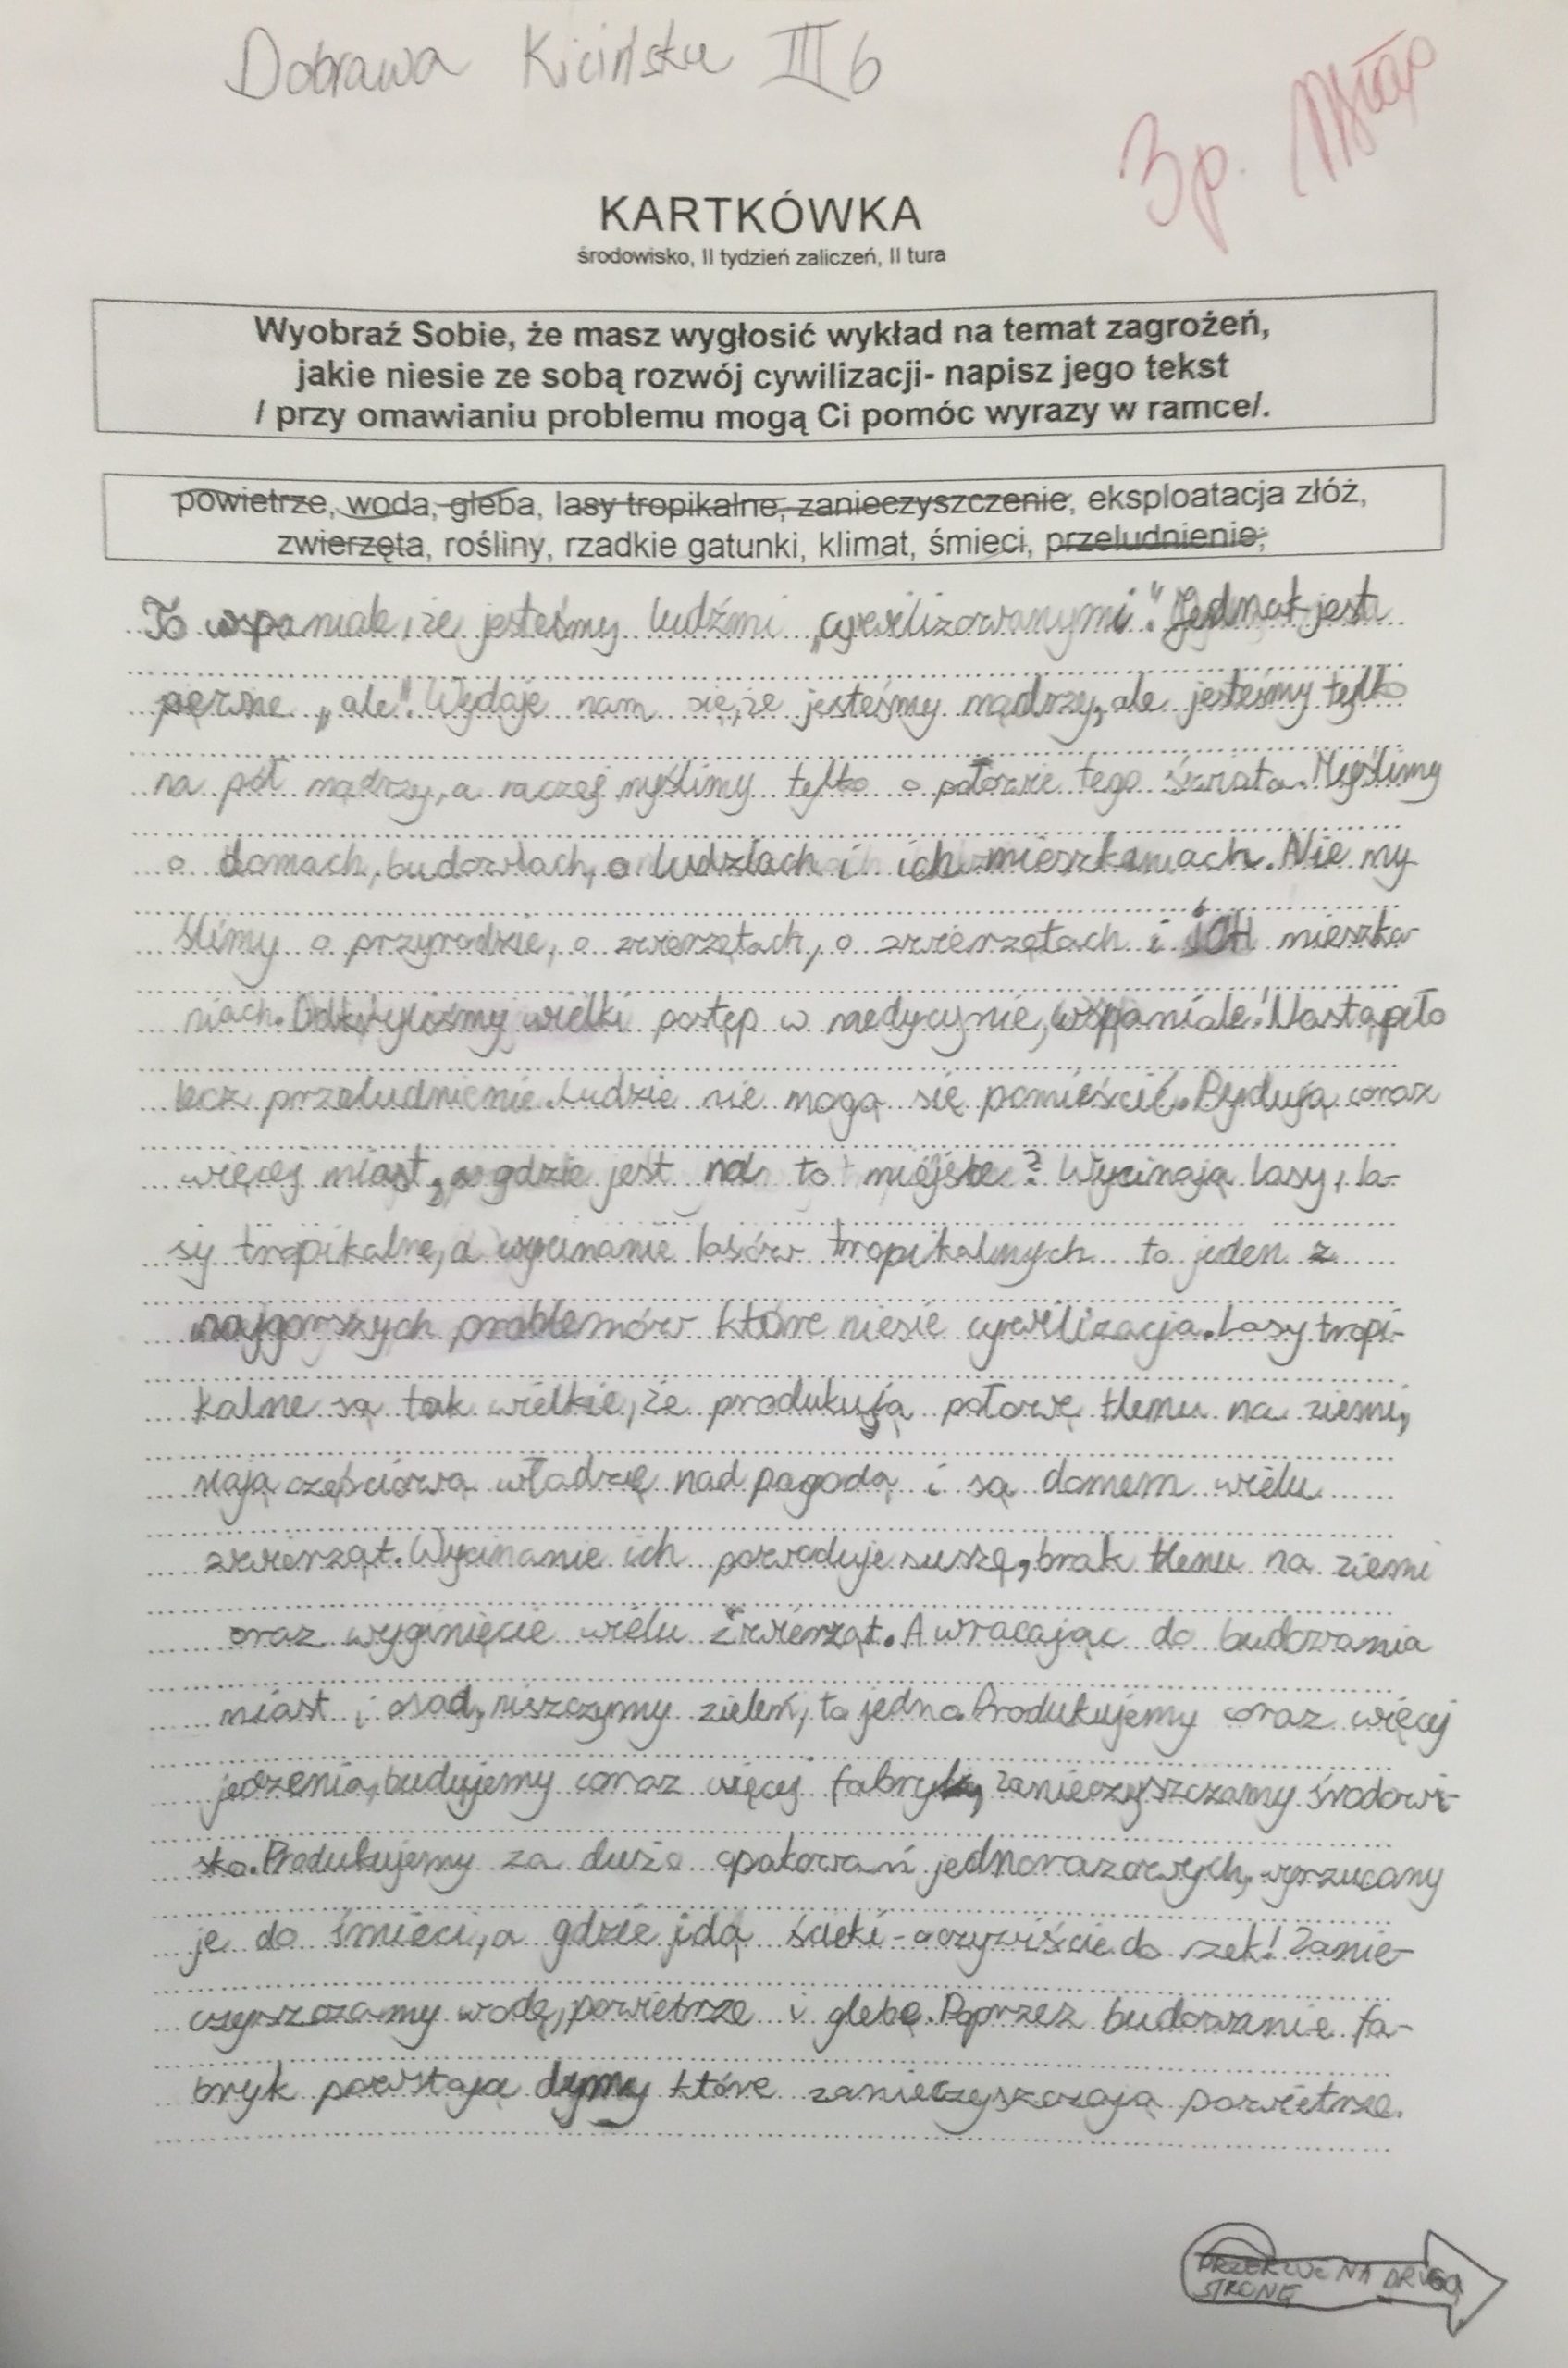 Dobrawa Kicińska III b
3p.
KARTKÓWKA
środowisko, II tydzień zaliczeń, II tura
Wyobraź Sobie, że masz wygłosić wykład na temat zagrożeń,
jakie niesie ze sobą rozwój cywilizacji- napisz jego tekst
/ przy omawianiu problemu mogą Ci pomóc wyrazy w ramce/.
powietrze, woda, gleba, lasy tropikalne, zanieczyszczenie, eksploatacja złóż,
zwierzęta, rośliny, rzadkie gatunki, klimat, śmieci, przeludnienie,
To wspaniale, że jesteśmy ludźmi „cywilizowanymi". Jednak jest
pewne „ale". Wydaje nam się, że jesteśmy mądrzy, ale jesteśmy tylko
na pół mądrzy, a raczej myślimy tylko o połowie tego świata. Myślimy
o domach, budowlach, o ludziach i ich mieszkaniach. Nie my
ślimy o przyrodzie, o zwierzętach, o zwierzętach i ICH mieszka-
niach. Odkryliśmy wielki postęp w medycynie, wspaniale! Nastąpiło
lecz przeludnienie. Ludzie nie mogą się pomieścić. Budują coraz
więcej miast, a gdzie jest na to miejsce? Wycinają lasy, la-
sy tropikalne, a wycinanie lasów tropikalnych to jeden z
najgorszych problemów które niesie cywilizacja. Lasy tropi-
kalne są tak wielkie, że produkują połowę tlenu na ziemi,
mają częściową władzę nad pogodą i są domem wielu
zwierząt. Wycinanie ich powoduje suszę, brak tlenu na ziemi
oraz wyginięcie wielu zwierząt. A wracając do budowania
miast i osad, niszczymy zieleń, to jedno. Produkujemy coraz więcej
jedzenia, budujemy coraz więcej fabryk, zanieczyszczamy środowi-
sko. Produkujemy za dużo opakowań jednorazowych, wyrzucamy
je do śmieci, a gdzie idą ścieki - oczywiście do rzek! Zanie-
czyszczamy wodę, powietrze i glebę. Poprzez budowanie fa-
bryk powstają dymy które zanieczyszczają powietrze.
PRZEKUĆ NA DRUGĄ
STRONĘ